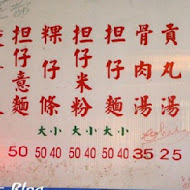 貢丸湯 25
骨肉湯 35
担仔麵 大 小 50 40
担仔米粉 大 小 50 40
粿仔條 大 小 50 40
担仔意麵 50
Blog